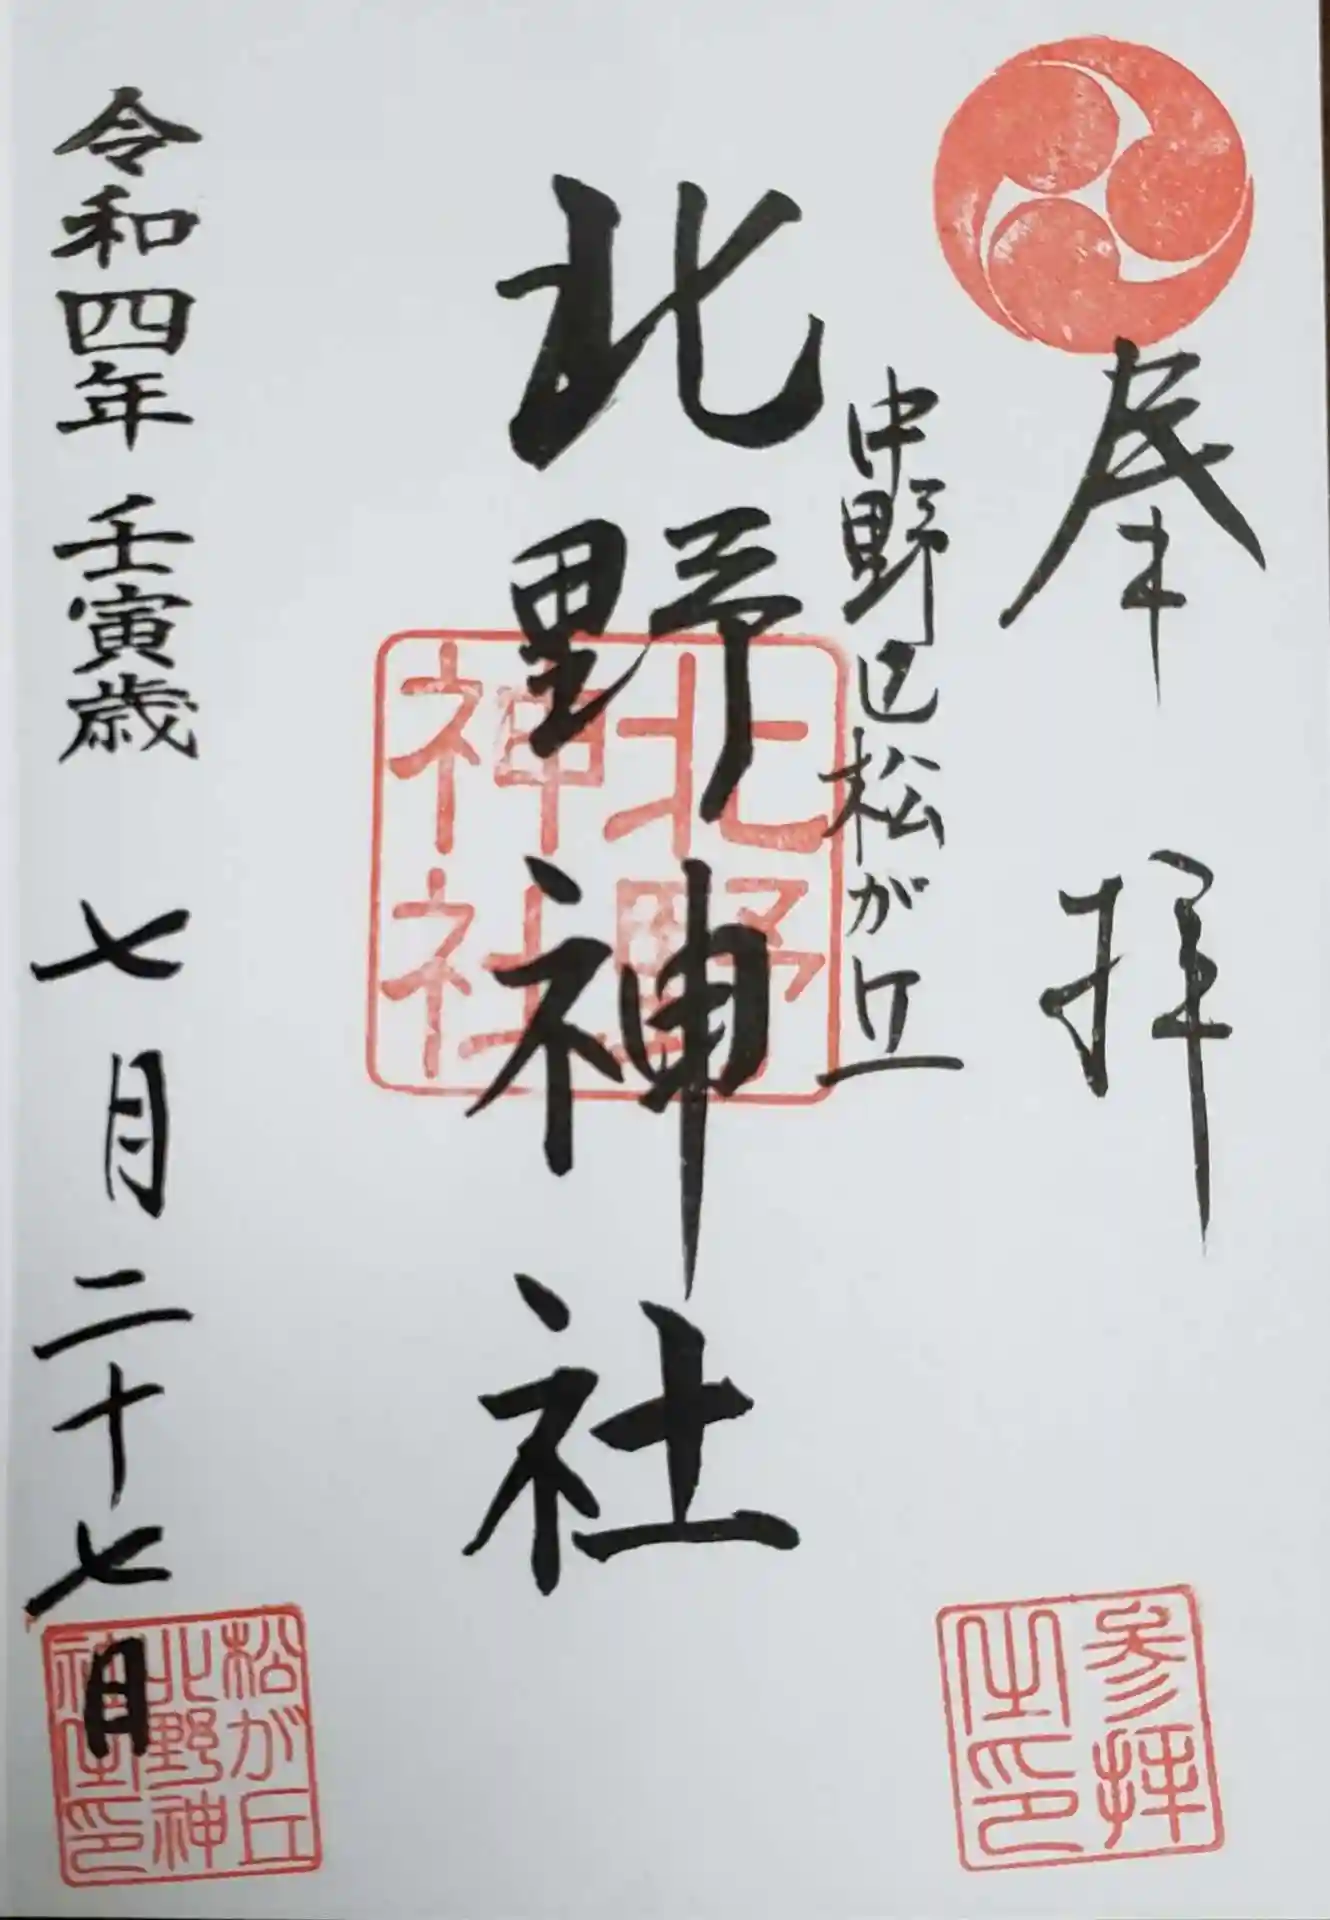 奉拝
中野区松が丘
北野神社
北野神社
令和四年 壬寅歳 七月二十七日
参拝之印
松が丘北野神社之印